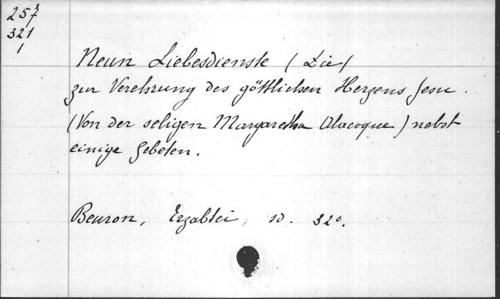 257
321
1
Neun Liebesdienste (Die)
zur Verehrung des göttlichen Herzens Jesu.
(Von der seligen Margaretha Alacoque) nebst
einige Gebeten.
Beuron, Erzabtei, 32°.